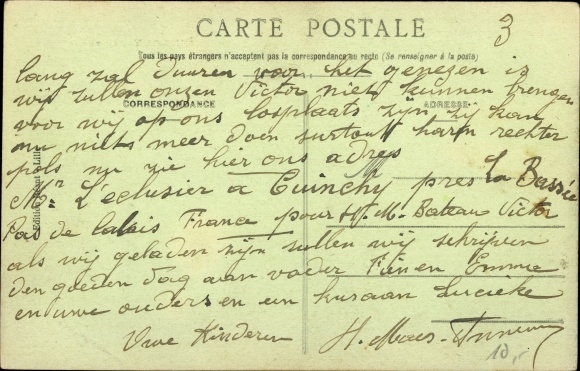 CARTE POSTALE
3
Tous les pays étrangers n'acceptent pas la correspondance au recto (Se renseigner à la poste)
CORRESPONDANCE
ADRESSE
lang zal duuren voor het genezen is
wij zullen onzen Victor niet kunnen brengen
voor wij op ons losplaats zijn zij kan
nu niets meer doen surtout haren rechter
pols nu zie hier ons adres
Mr L'eclusier a Cuinchy pres La Bassée
Pas de Calais France pour H. M. Bateau Victor
als wij geladen zijn zullen wij schrijven
den goeden dag aan vader en Emma
en uwe ouders en een kus aan Lucieke
Uwe Kinderen H. Maes
10,-